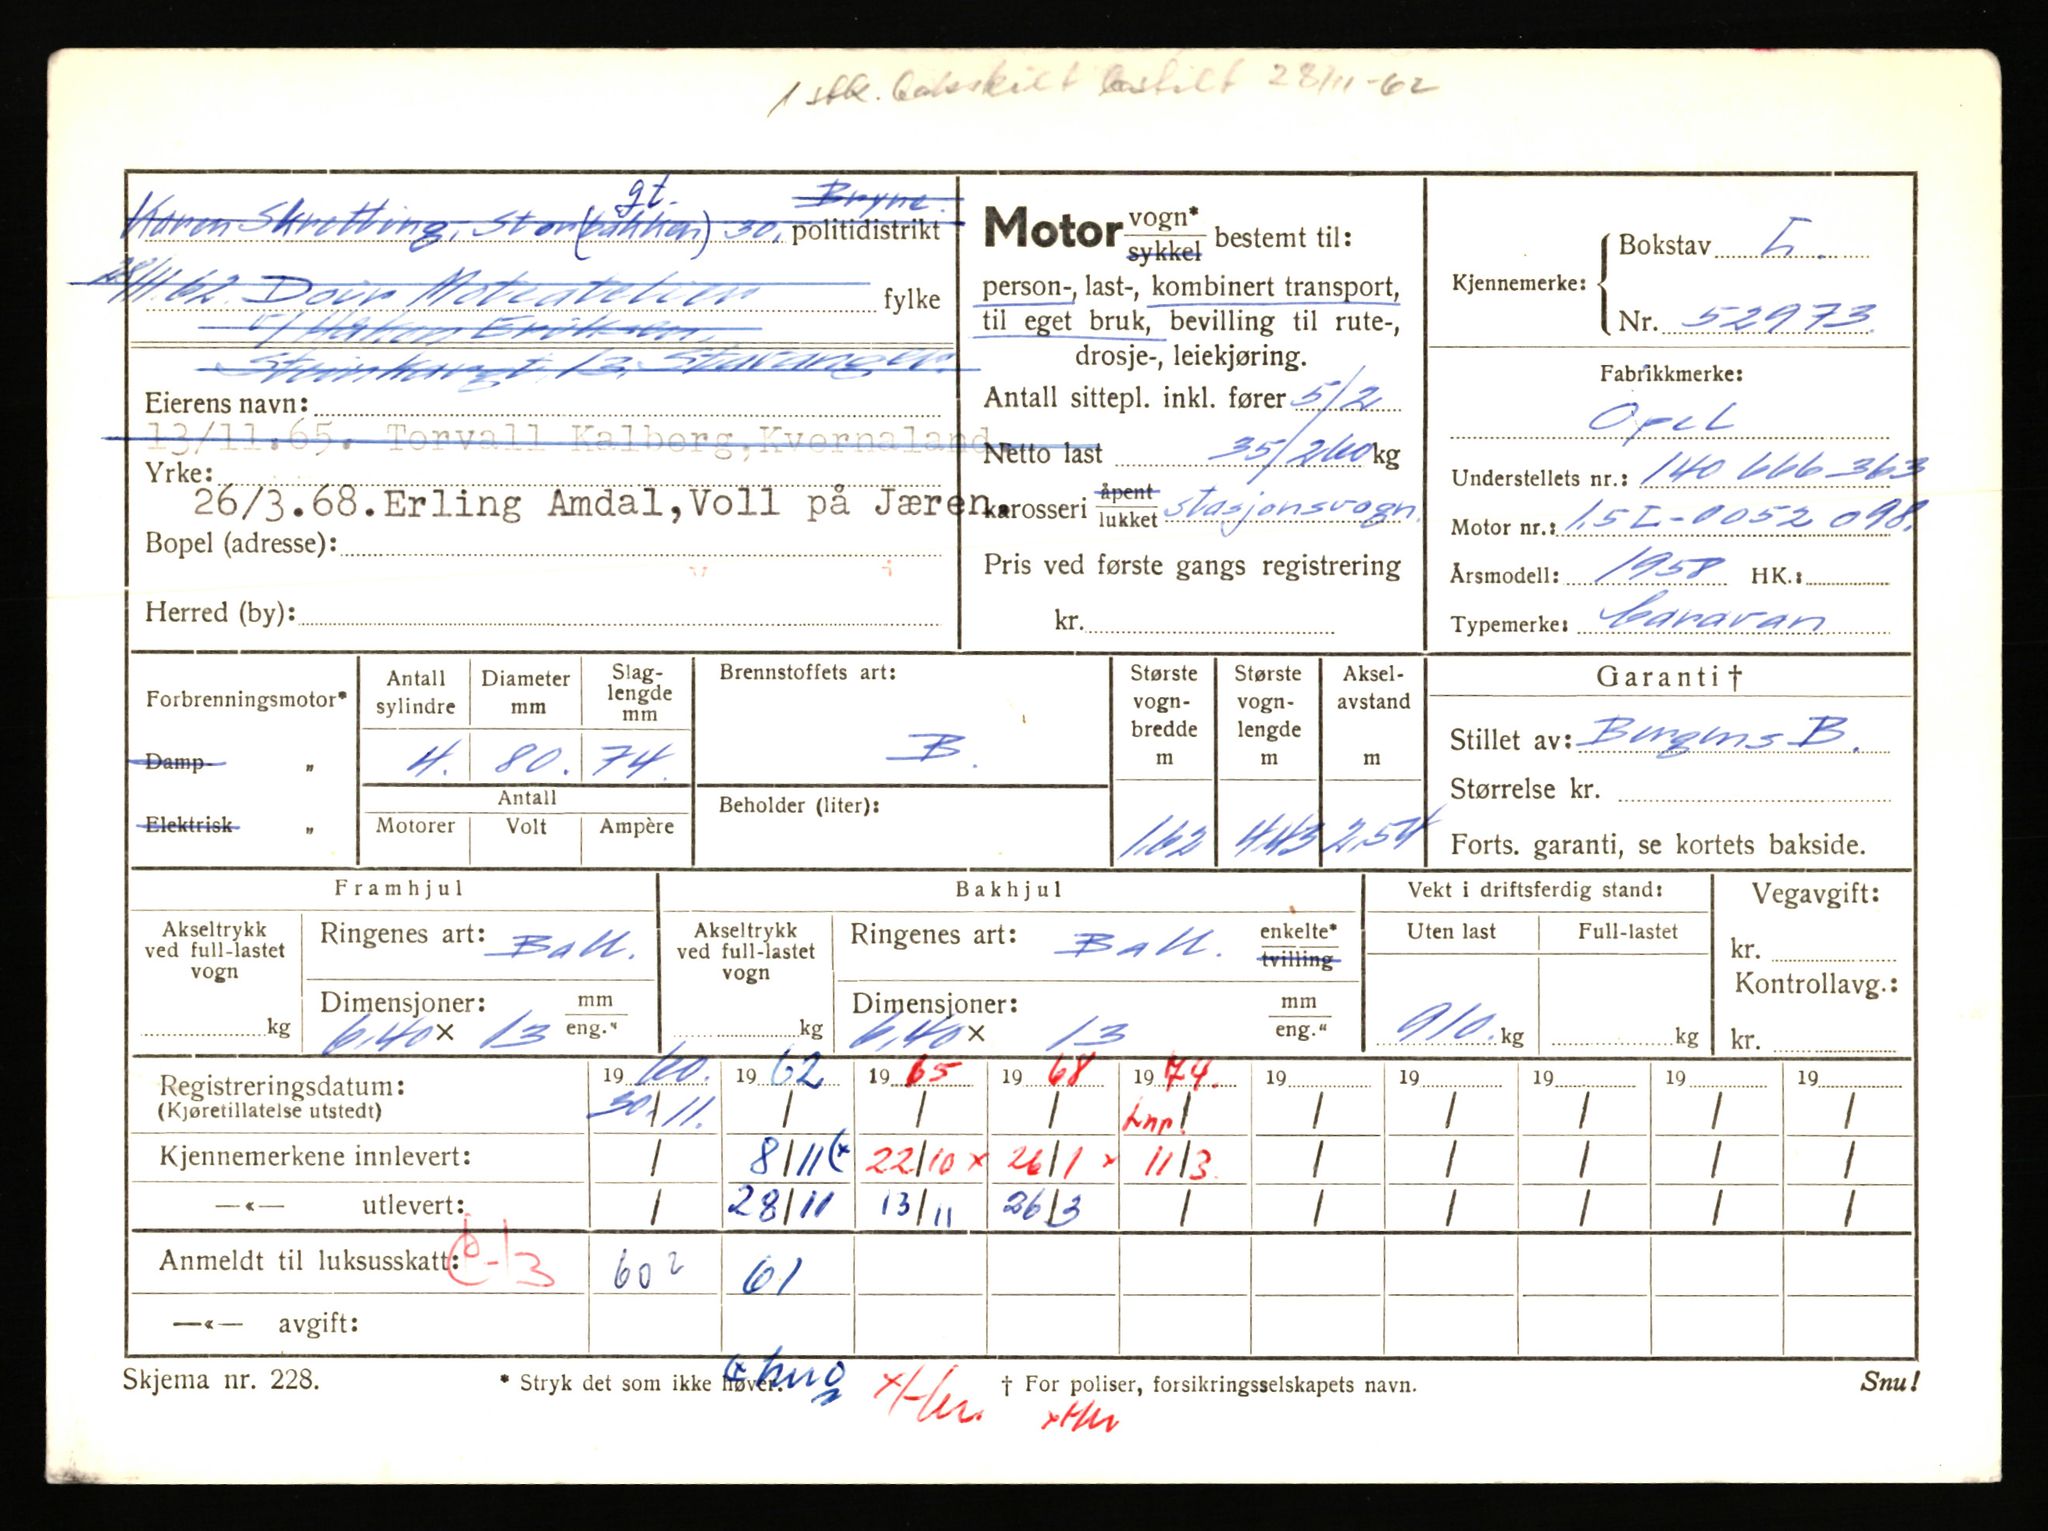 1 stk. bakskilt bestilt 28/11-62
Karen Skretting, Stor(bakken) gt. 30, Bryne. politidistrikt
28/11.62. Doir Moteatelier fylke
v/ Håkon Eriksen,
Steinkargt. 13, Stavanger.
Eierens navn:
13/11.65. Torvall Kalberg,Kvernaland
Yrke:
26/3.68.Erling Amdal,Voll på Jæren.
Bopel (adresse):
Herred (by):
Motor vogn* sykkel bestemt til:
person-, last-, kombinert transport,
til eget bruk, bevilling til rute-,
drosje-, leiekjøring.
Antall sittepl. inkl. fører 5/2
Netto last 35/260 kg
karosseri åpent lukket stasjonsvogn.
Pris ved første gangs registrering
kr.
Kjennemerke: Bokstav L.
Nr. 52973.
Fabrikkmerke:
Opel
Understellets nr.: 140 666 363
Motor nr.: 1.5 L-0052 098.
Årsmodell: 1958 HK.:
Typemerke: Caravan
Forbrenningsmotor*
Damp- "
Elektrisk "
Antall sylindre Diameter mm Slaglengde mm
4. 80. 74.
Antall
Motorer Volt Ampère
Brennstoffets art:
B.
Beholder (liter):
Største vogn- bredde m Største vogn- lengde m Aksel- avstand m
1.62 4.43 2.54
Garanti †
Stillet av: Bergens B.
Størrelse kr.
Forts. garanti, se kortets bakside.
Framhjul
Akseltrykk ved full-lastet vogn kg
Ringenes art: Ball.
Dimensjoner: mm eng."
6,40 × 13
Bakhjul
Akseltrykk ved full-lastet vogn kg
Ringenes art: Ball. enkelte* tvilling
Dimensjoner: mm eng."
6,40 × 13
Vekt i driftsferdig stand:
Uten last Full-lastet
910. kg kg
Vegavgift:
kr.
Kontrollavg.:
kr.
Registreringsdatum: 19 60. 19 62 19 65 19 68 19 74. 19 19 19 19 19
(Kjøretillatelse utstedt) 30/11. / / / Lnr. / / / / / /
Kjennemerkene innlevert: / 8/11 (x 22/10 x 26/1 x 11/3 / / / / /
—«— utlevert: / 28/11 13/11 26/3 / / / / / /
Anmeldt til luksusskatt: 60 2 61
—«— avgift:
Skjema nr. 228. * Stryk det som ikke høver. † For poliser, forsikringsselskapets navn. Snu!